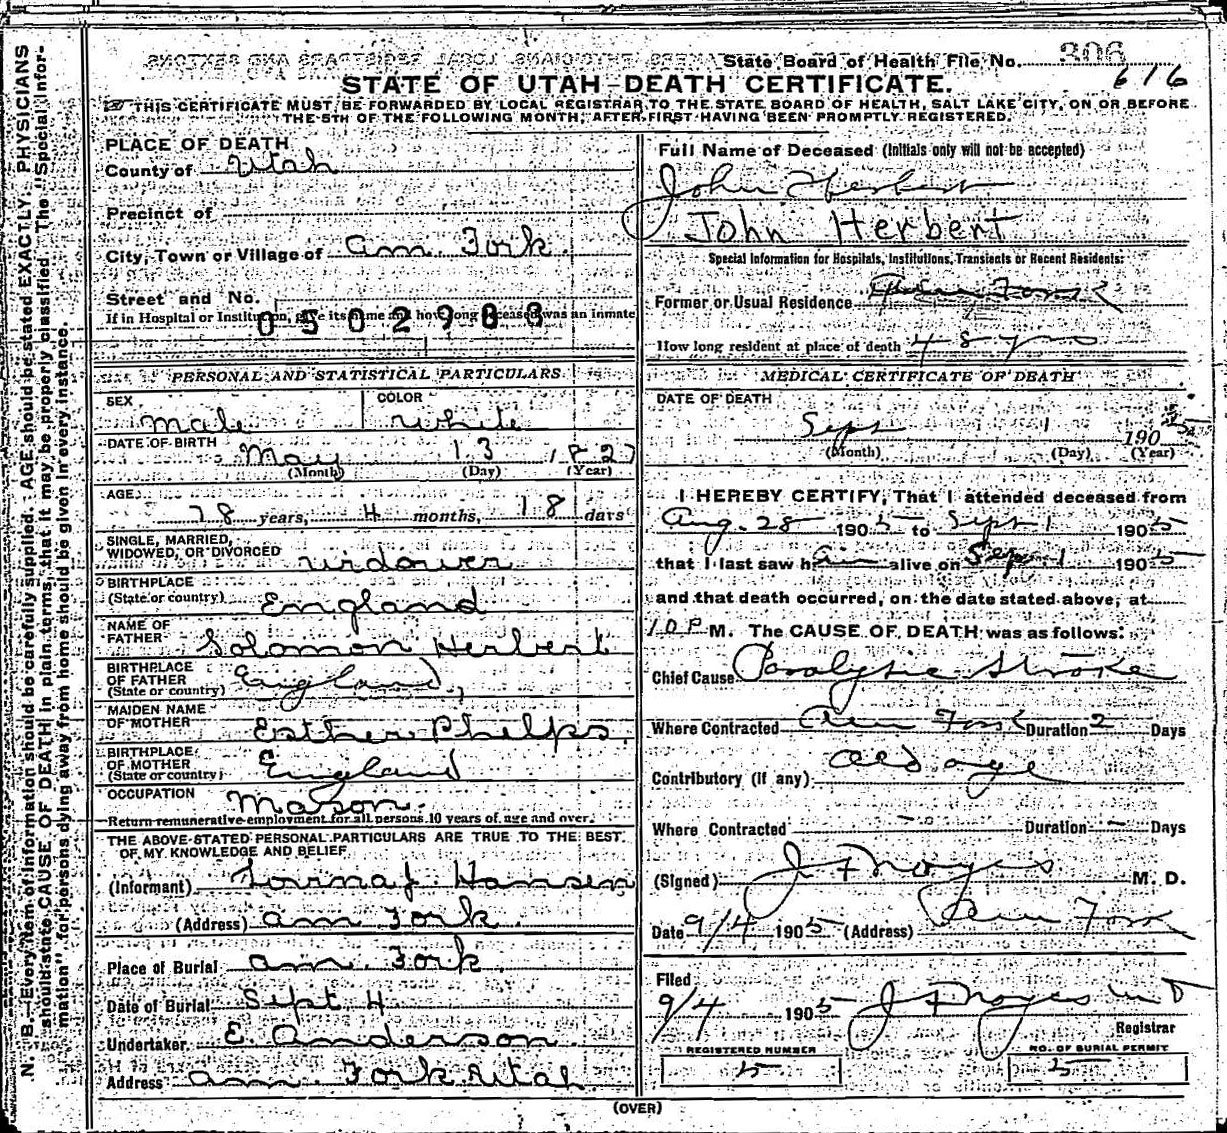 State Board of Health File No. 306
616
STATE OF UTAH-DEATH CERTIFICATE.
THIS CERTIFICATE MUST BE FORWARDED BY LOCAL REGISTRAR TO THE STATE BOARD OF HEALTH, SALT LAKE CITY, ON OR BEFORE
THE 5TH OF THE FOLLOWING MONTH, AFTER FIRST HAVING BEEN PROMPTLY REGISTERED.
PLACE OF DEATH
County of Utah
Precinct of
City, Town or Village of am. Fork
Street and No.
If in Hospital or Institution, give its name and how long deceased was an inmate
0502983
PERSONAL AND STATISTICAL PARTICULARS
SEX male COLOR white
DATE OF BIRTH May 13 1827
(Month) (Day) (Year)
AGE 78 years, 4 months, 18 days
SINGLE, MARRIED,
WIDOWED, OR DIVORCED widower
BIRTHPLACE
(State or country) England
NAME OF
FATHER Solomon Herbert
BIRTHPLACE
OF FATHER
(State or country) England
MAIDEN NAME
OF MOTHER Esther Phelps
BIRTHPLACE
OF MOTHER
(State or country) England
OCCUPATION Mason.
Return remunerative employment for all persons 10 years of age and over.
THE ABOVE STATED PERSONAL PARTICULARS ARE TRUE TO THE BEST
OF MY KNOWLEDGE AND BELIEF
(Informant) Hansen
(Address) am Fork.
Place of Burial am. Fork.
Date of Burial Sept 4
Undertaker E. Anderson.
Address am. Fork Utah
Full Name of Deceased (Initials only will not be accepted)
John Herbert
John Herbert
Special Information for Hospitals, Institutions, Transients or Recent Residents:
Former or Usual Residence Am Fork
How long resident at place of death 48 yrs
MEDICAL CERTIFICATE OF DEATH
DATE OF DEATH
Sept 1 1905
(Month) (Day) (Year)
I HEREBY CERTIFY, That I attended deceased from
Aug. 28 1905 to Sept 1 1905
that I last saw him alive on Sept 1 1905
and that death occurred, on the date stated above, at
10 P M. The CAUSE OF DEATH was as follows:
Chief Cause Paralytic Stroke
Where Contracted Am Fork Duration 2 Days
Contributory (if any) Old age
Where Contracted - Duration - Days
(Signed) J F Noyes M. D.
Date 9/4 1905 (Address) Am Fork
Filed
9/4 1905 J F Noyes M D
Registrar
REGISTERED NUMBER
5
NO. OF BURIAL PERMIT
5
(OVER)
N. B.—Every item of information should be carefully supplied. AGE should be stated EXACTLY. PHYSICIANS
should state CAUSE OF DEATH in plain terms, that it may be properly classified. The "Special Infor-
mation" for persons dying away from home should be given in every instance.